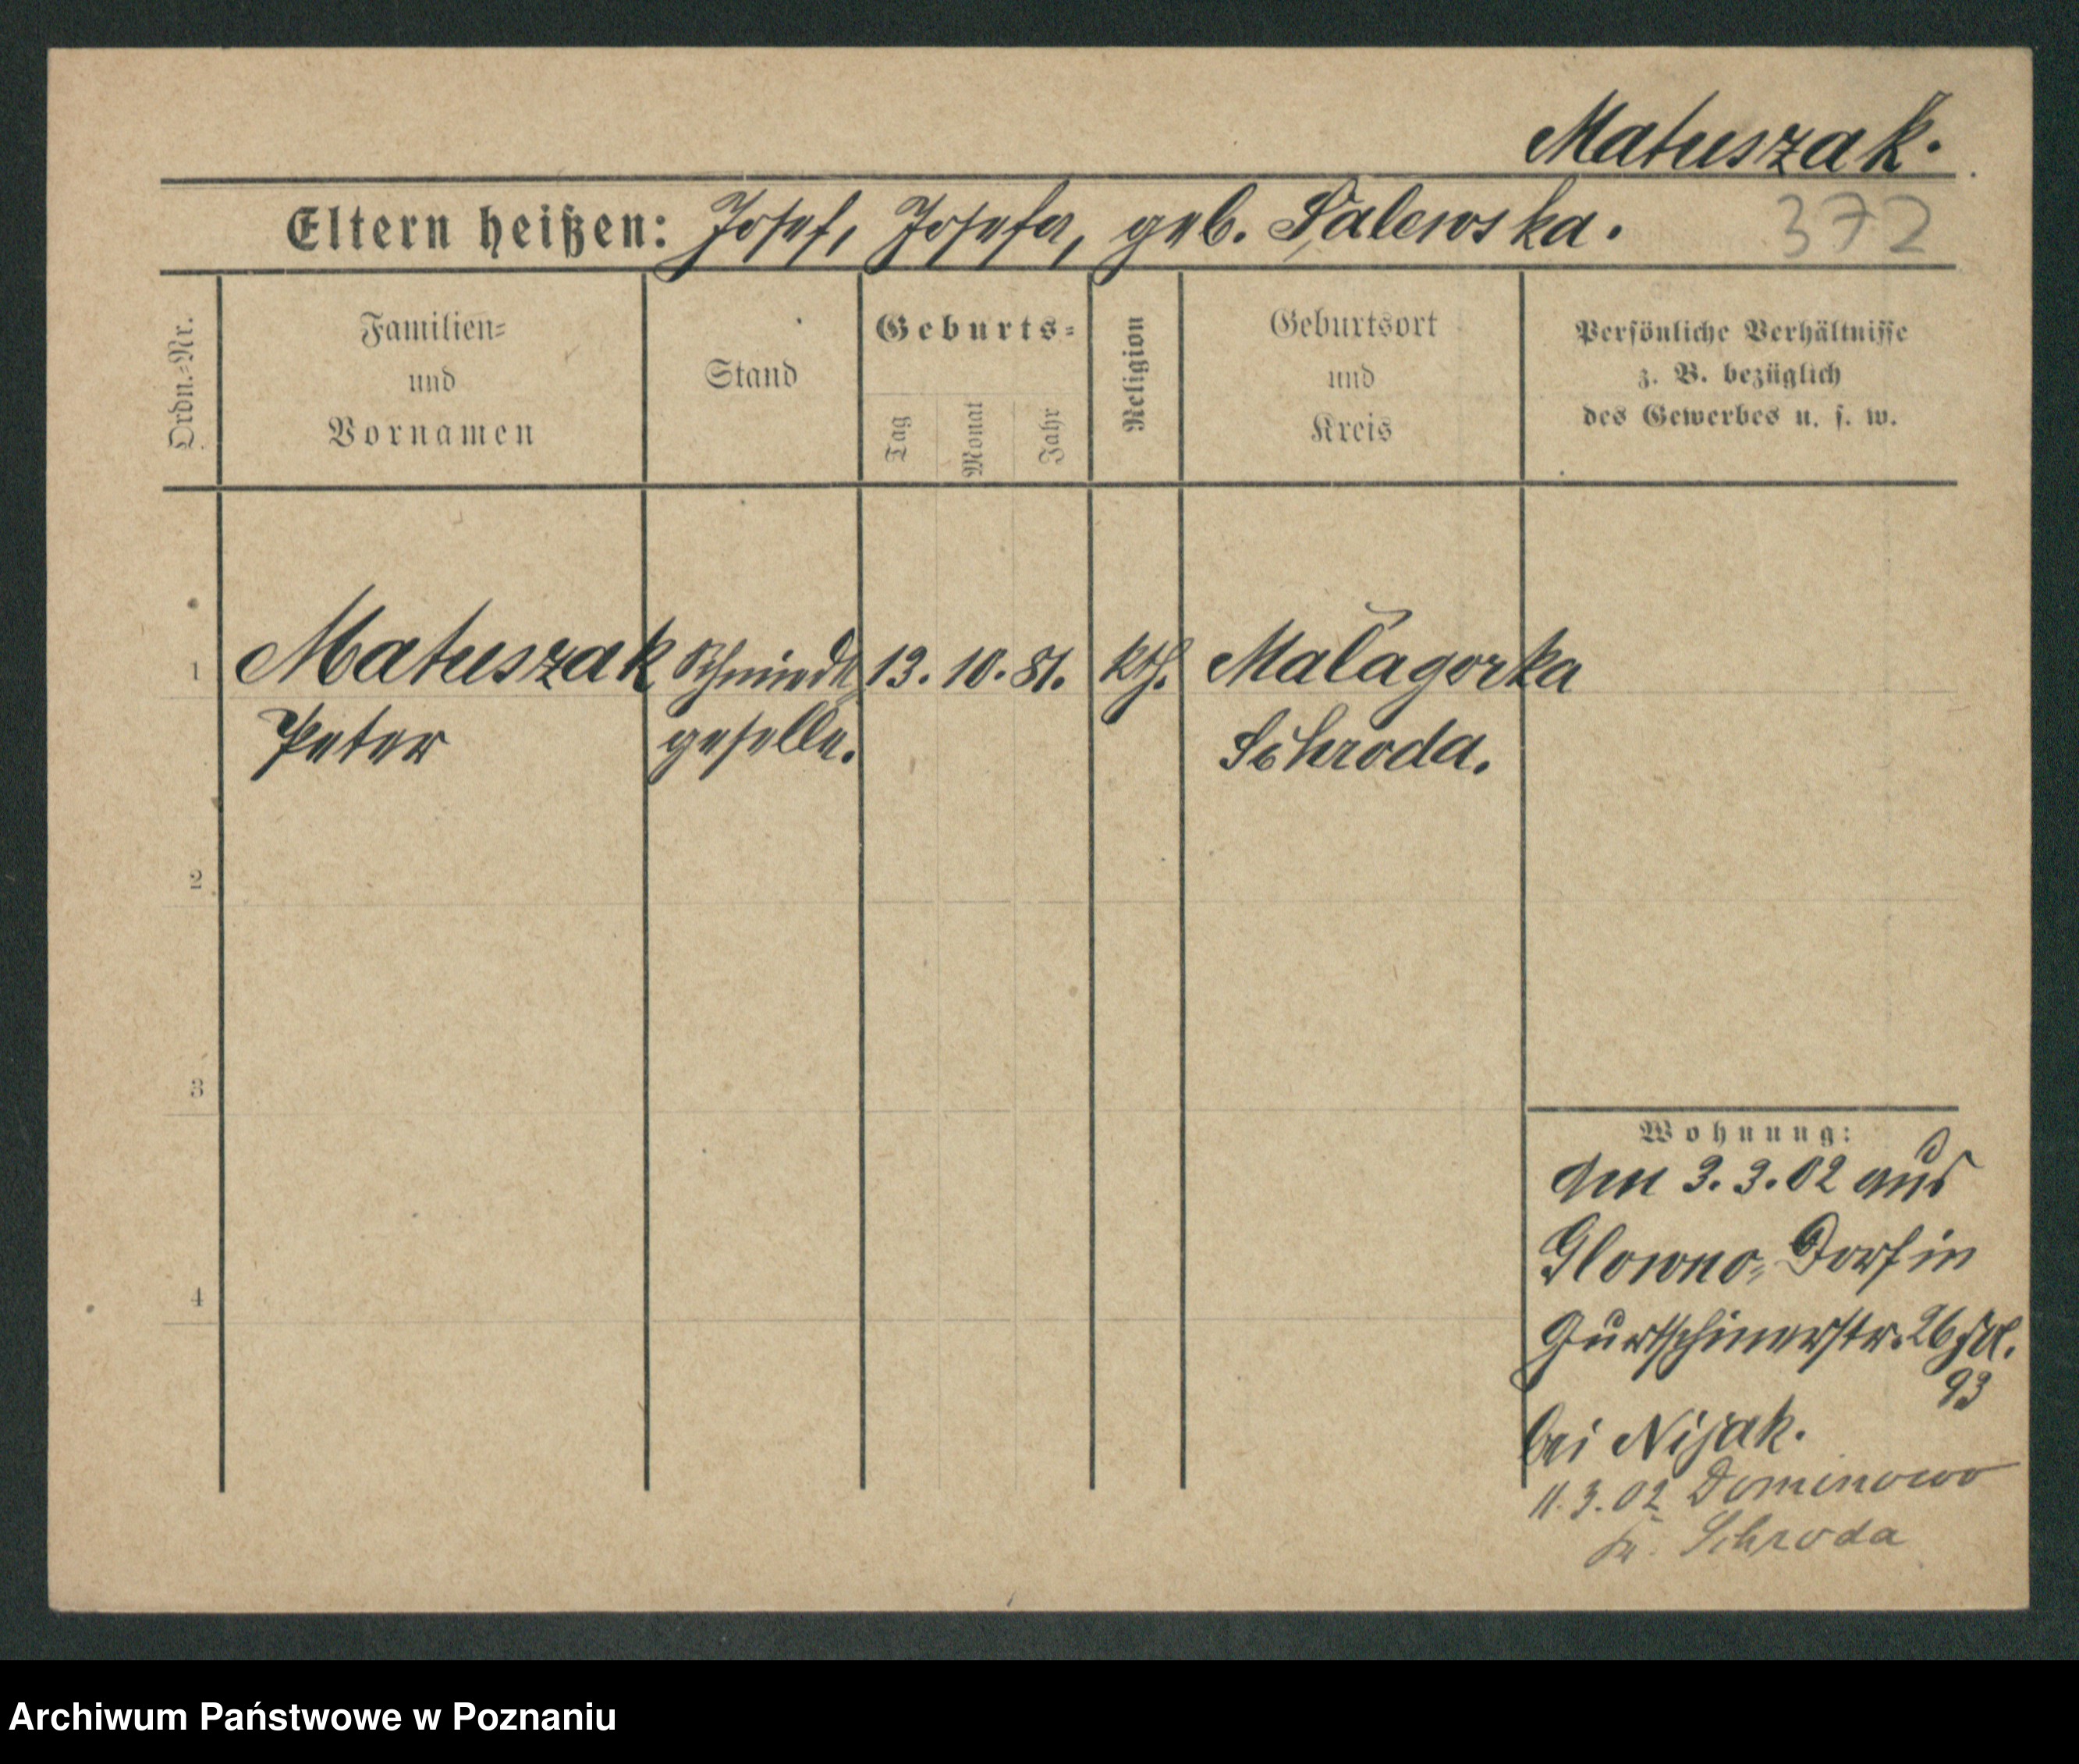 Matuszak.
Eltern heißen: Josef, Josefa, geb. Salewska.
372
Ordn.-Nr.
Familien-
und
Vornamen
Stand
Geburts-
Tag
Monat
Jahr
Religion
Geburtsort
und
Kreis
Persönliche Verhältnisse
z. B. bezüglich
des Gewerbes u. s. w.
1 Matuszak Schmiede 13. 10. 81. kth. Malagorka
Peter geselle. Schroda.
2
3
4
Wohnung:
den 3.3.02 aus
Glowno-Dorf in
Gurtschinerstr. 26
93
bei Nijak.
11.3.02 Dominowo
Kr. Schroda
Archiwum Państwowe w Poznaniu